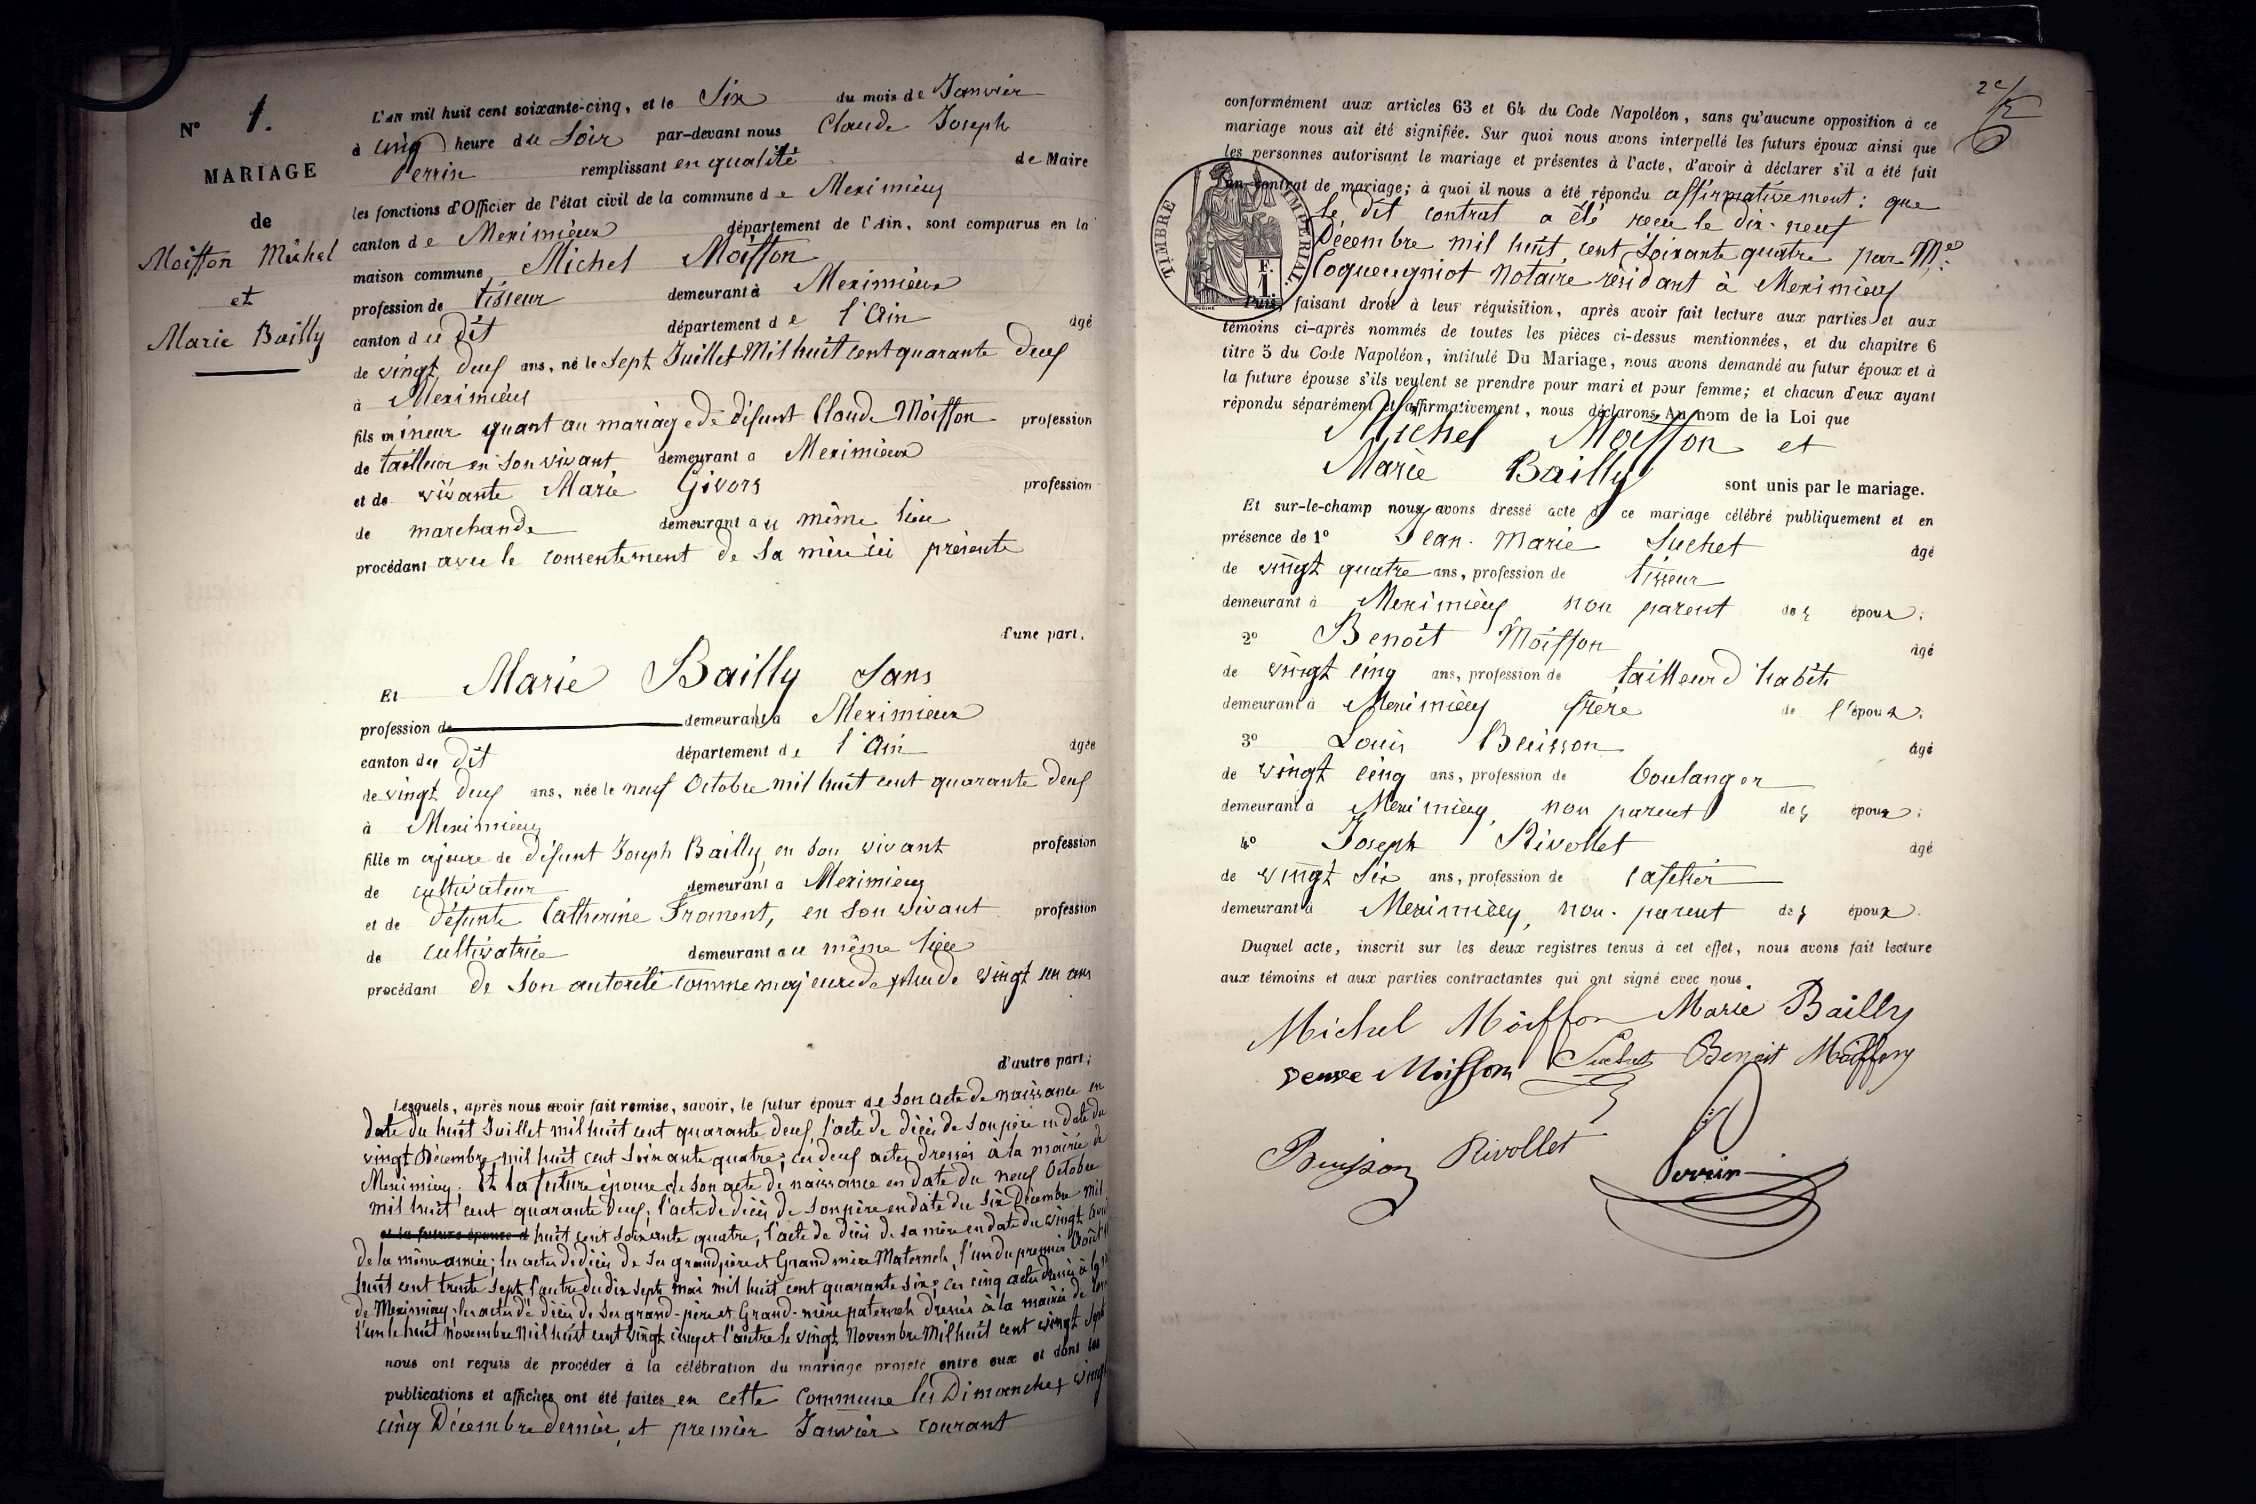 N° 1.
MARIAGE
de
Moiffon Michel
et
Marie Bailly
L'an mil huit cent soixante-cinq, et le Six du mois de Janvier
à cinq heure du Soir par-devant nous Claude Joseph
Perrin remplissant en qualité de Maire
les fonctions d'Officier de l'état civil de la commune de Meximieux
canton de Meximieux département de l'Ain, sont comparus en la
maison commune Michel Moiffon
profession de tisseur demeurant à Meximieux
canton du dit département de l'Ain âgé
de vingt deux ans, né le sept Juillet Mil huit cent quarante deux
à Meximieux
fils mineur quant au mariage de défunt Claude Moiffon profession
de tailleur en son vivant demeurant à Meximieux
et de vivante Marie Givors profession
de marchande demeurant au même lieu
procédant avec le consentement de sa mère ici présente
d'une part.
Et Marie Bailly Sans
profession de demeurant à Meximieux
canton du dit département de l'Ain âgée
de vingt deux ans, née le neuf Octobre mil huit cent quarante deux
à Meximieux
fille majeure de défunt Joseph Bailly, en son vivant profession
de cultivateur demeurant à Meximieux
et de défunte Catherine Froment, en son vivant profession
de cultivatrice demeurant au même lieu
procédant de son autorité comme majeure de plus de vingt un ans
d'autre part;
Lesquels, après nous avoir fait remise, savoir, le futur époux de son acte de naissance en
date du huit Juillet mil huit cent quarante deux, l'acte de décès de son père en date du
vingt Décembre mil huit cent soixante quatre; ces deux actes dressés à la mairie de
Meximieux; Et la future épouse de son acte de naissance en date du neuf Octobre
mil huit cent quarante deux; l'acte de décès de son père en date du six Décembre mil
et la future épouse d huit cent soixante quatre, l'acte de décès de sa mère en date du vingt
de la même année; les actes de décès de ses grand père et Grand mère Maternels, l'un du premier Août
huit cent trente sept l'autre du dix sept mai mil huit cent quarante six; ces cinq actes dressés à la
de Meximieux; les actes de décès de ses grand-père et Grand-mère paternels dressés à la mairie de
l'un le huit Novembre Mil huit cent vingt cinq et l'autre le vingt Novembre Mil huit cent vingt Sept
nous ont requis de procéder à la célébration du mariage projeté entre eux et dont les
publications et affiches ont été faites en cette commune les Dimanches vingt
cinq Décembre dernier, et premier Janvier courant
conformément aux articles 63 et 64 du Code Napoléon, sans qu'aucune opposition à ce
mariage nous ait été signifiée. Sur quoi nous avons interpellé les futurs époux ainsi que
les personnes autorisant le mariage et présentes à l'acte, d'avoir à déclarer s'il a été fait
un contrat de mariage; à quoi il nous a été répondu affirmativement: que
le dit contrat a été reçu le dix-neuf
Décembre mil huit cent soixante quatre par Me
Coqueugniot Notaire résidant à Meximieux
TIMBRE IMPERIAL
F.
1.
Puis, faisant droit à leur réquisition, après avoir fait lecture aux parties et aux
témoins ci-après nommés de toutes les pièces ci-dessus mentionnées, et du chapitre 6
titre 5 du Code Napoléon, intitulé Du Mariage, nous avons demandé au futur époux et à
la future épouse s'ils veulent se prendre pour mari et pour femme; et chacun d'eux ayant
répondu séparément et affirmativement, nous déclarons Au nom de la Loi que
Michel Moiffon et
Marie Bailly
sont unis par le mariage.
Et sur-le-champ nous avons dressé acte de ce mariage célébré publiquement et en
présence de 1° Jean-Marie Suchet âgé
de vingt quatre ans, profession de tisseur
demeurant à Meximieux non parent des époux;
2° Benoît Moiffon âgé
de vingt cinq ans, profession de tailleur d'habits
demeurant à Meximieux frère de l'époux;
3° Louis Buisson âgé
de vingt cinq ans, profession de boulanger
demeurant à Meximieux, non parent des époux;
4° Joseph Rivollet âgé
de vingt six ans, profession de cafetier
demeurant à Meximieux, non-parent des époux.
Duquel acte, inscrit sur les deux registres tenus à cet effet, nous avons fait lecture
aux témoins et aux parties contractantes qui ont signé avec nous.
Michel Moiffon Marie Bailly
veuve Moiffon Suchet Benoit Moiffon
Buisson Rivollet Perrin